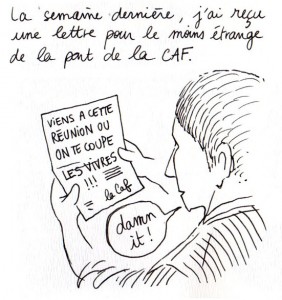 La semaine dernière, j'ai reçu
une lettre pour le moins étrange
de la part de la CAF.
VIENS A CETTE
RÉUNION OU
ON TE COUPE
LES VIVRES
!!!
la Caf
damn
it!